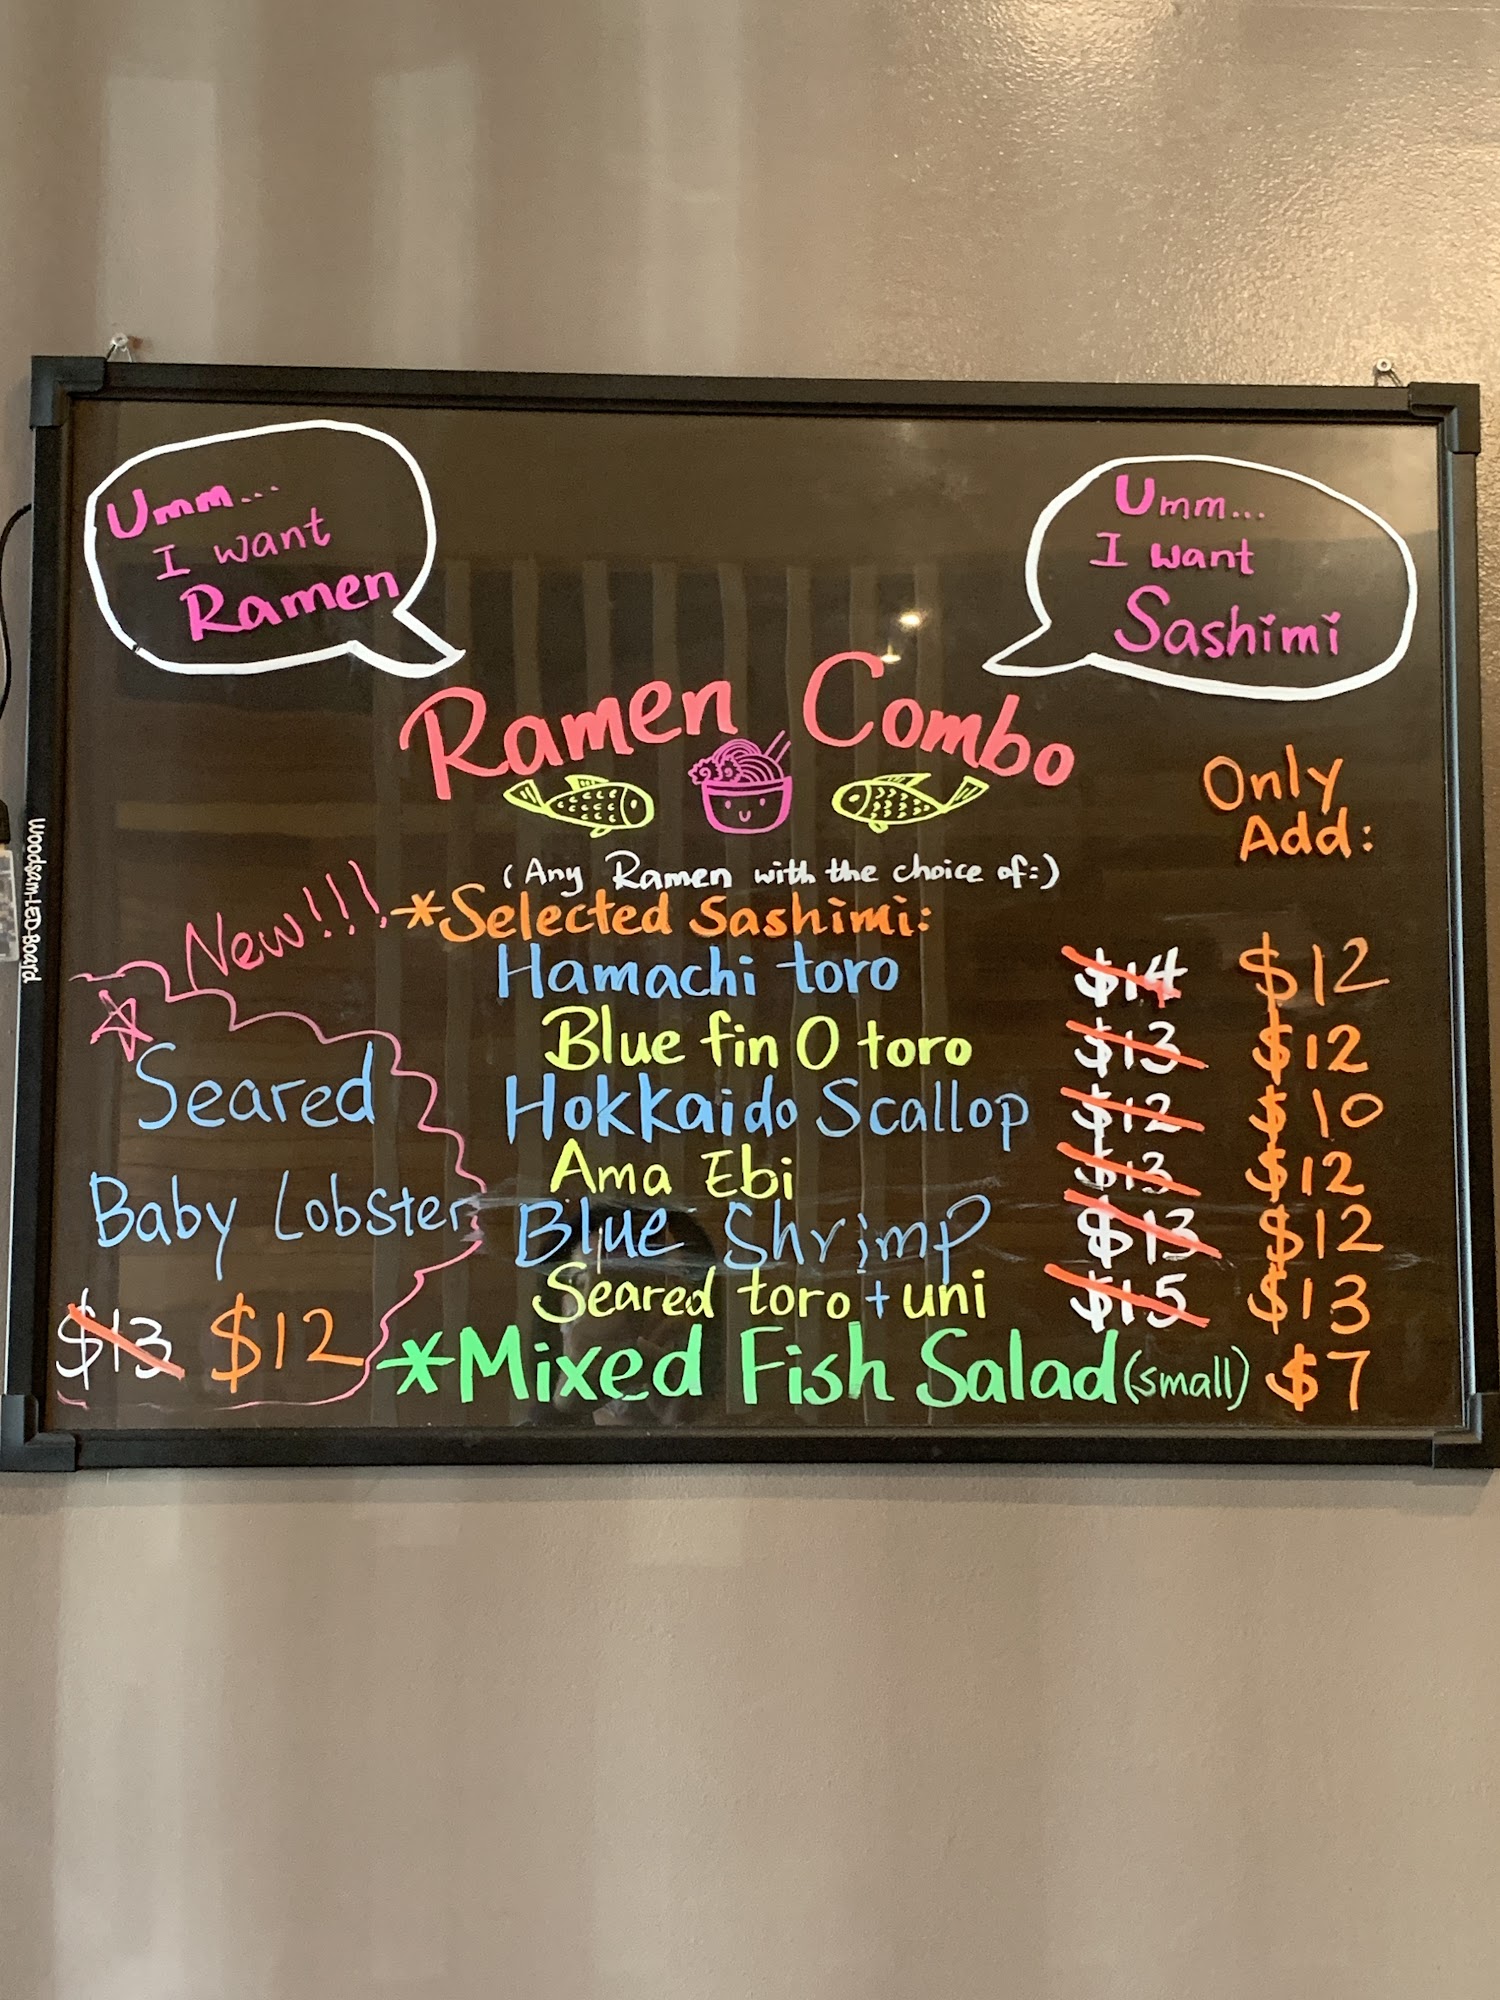 Umm...
I want
Ramen
Umm...
I want
Sashimi
Ramen Combo
Only
Add:
(Any Ramen with the choice of:)
New!!!
*Selected Sashimi:
Hamachi toro $14 $12
Blue fin O toro $13 $12
Hokkaido Scallop $12 $10
Ama Ebi $13 $12
Blue Shrimp $13 $12
Seared toro + uni $15 $13
*Mixed Fish Salad (small) $7
Seared
Baby Lobster
$13 $12
Woodsam-LED-Board